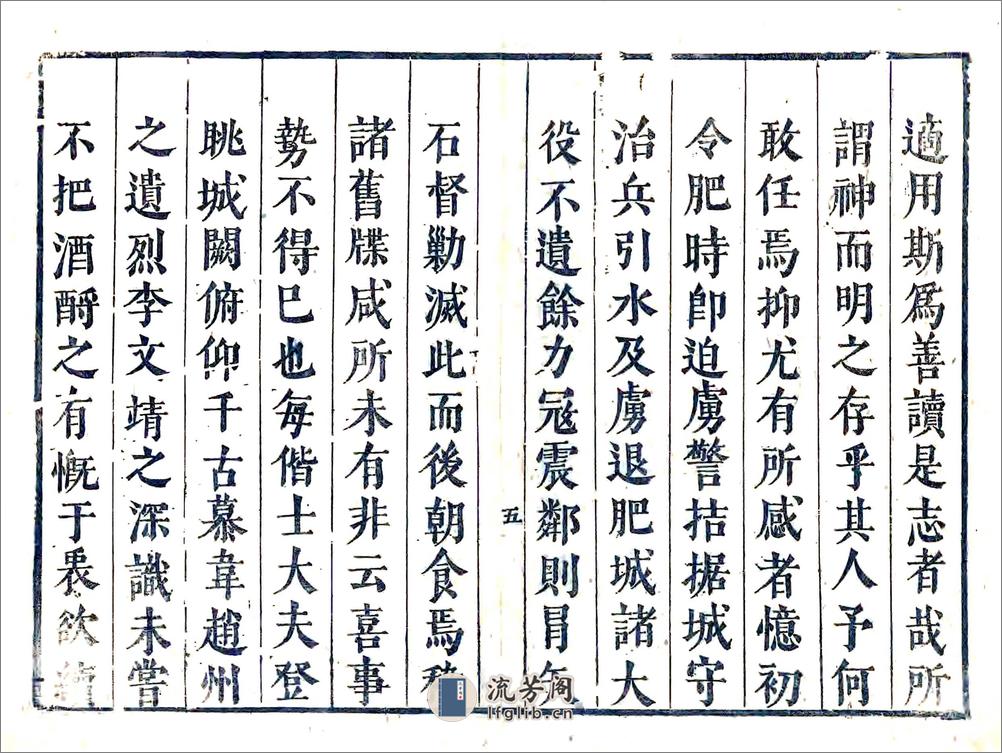 適用斯爲善讀是志者哉所
謂神而明之存乎其人予何
敢任焉抑尤有所感者憶初
令肥時即迫虜警拮据城守
治兵引水及虜退肥城諸大
役不遺餘力冦震鄰則冐矢
五
石督勦滅此而後朝食焉
諸舊牒咸所未有非云喜事
勢不得已也每偕士大夫登
眺城闕俯仰千古慕韋趙州
之遺烈李文靖之深識未嘗
不把酒酹之有慨于衷欲
流芳阁
lfglib.cn